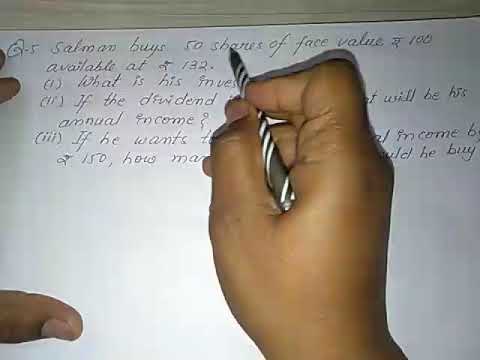 Q-5 Salman buys 50 shares of face value ₹ 100
available at ₹ 132.
(i) What is his
(ii) If the dividend will be his
annual income?
(iii) If he wants income by
₹ 150, how he buy